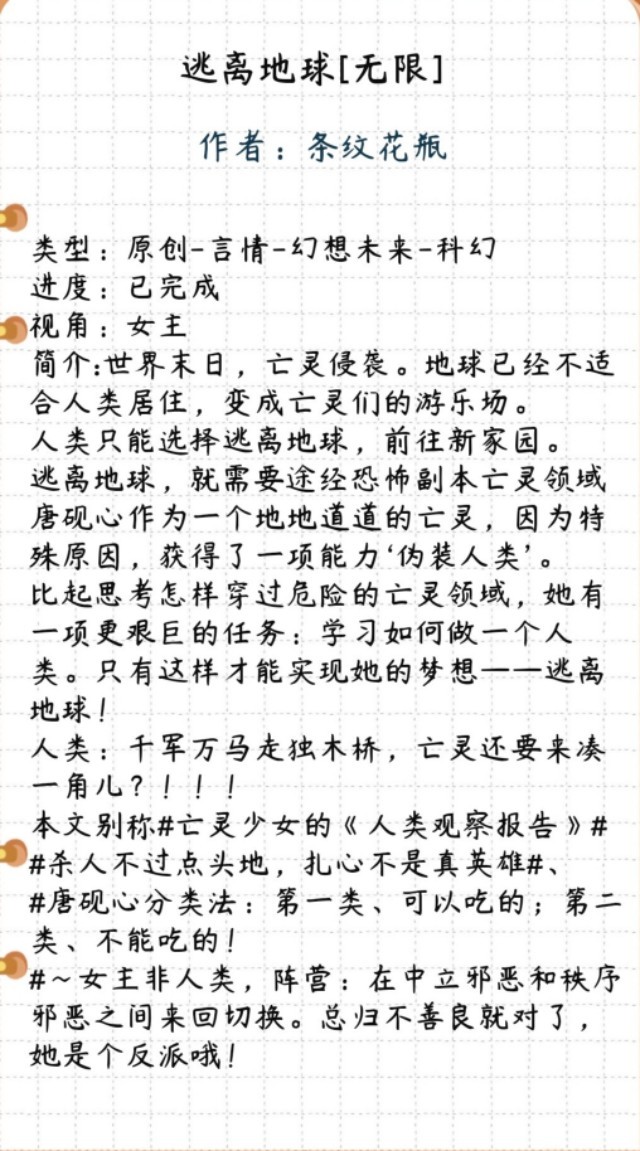 逃离地球[无限]
作者：条纹花瓶
类型：原创-言情-幻想未来-科幻
进度：已完成
视角：女主
简介:世界末日，亡灵侵袭。地球已经不适
合人类居住，变成亡灵们的游乐场。
人类只能选择逃离地球，前往新家园。
逃离地球，就需要途经恐怖副本亡灵领域
唐砚心作为一个地地道道的亡灵，因为特
殊原因，获得了一项能力‘伪装人类’。
比起思考怎样穿过危险的亡灵领域，她有
一项更艰巨的任务：学习如何做一个人
类。只有这样才能实现她的梦想——逃离
地球！
人类：千军万马走独木桥，亡灵还要来凑
一角儿？！！！
本文别称#亡灵少女的《人类观察报告》#
#杀人不过点头地，扎心不是真英雄#、
#唐砚心分类法：第一类、可以吃的；第二
类、不能吃的！
#~女主非人类，阵营：在中立邪恶和秩序
邪恶之间来回切换。总归不善良就对了，
她是个反派哦！